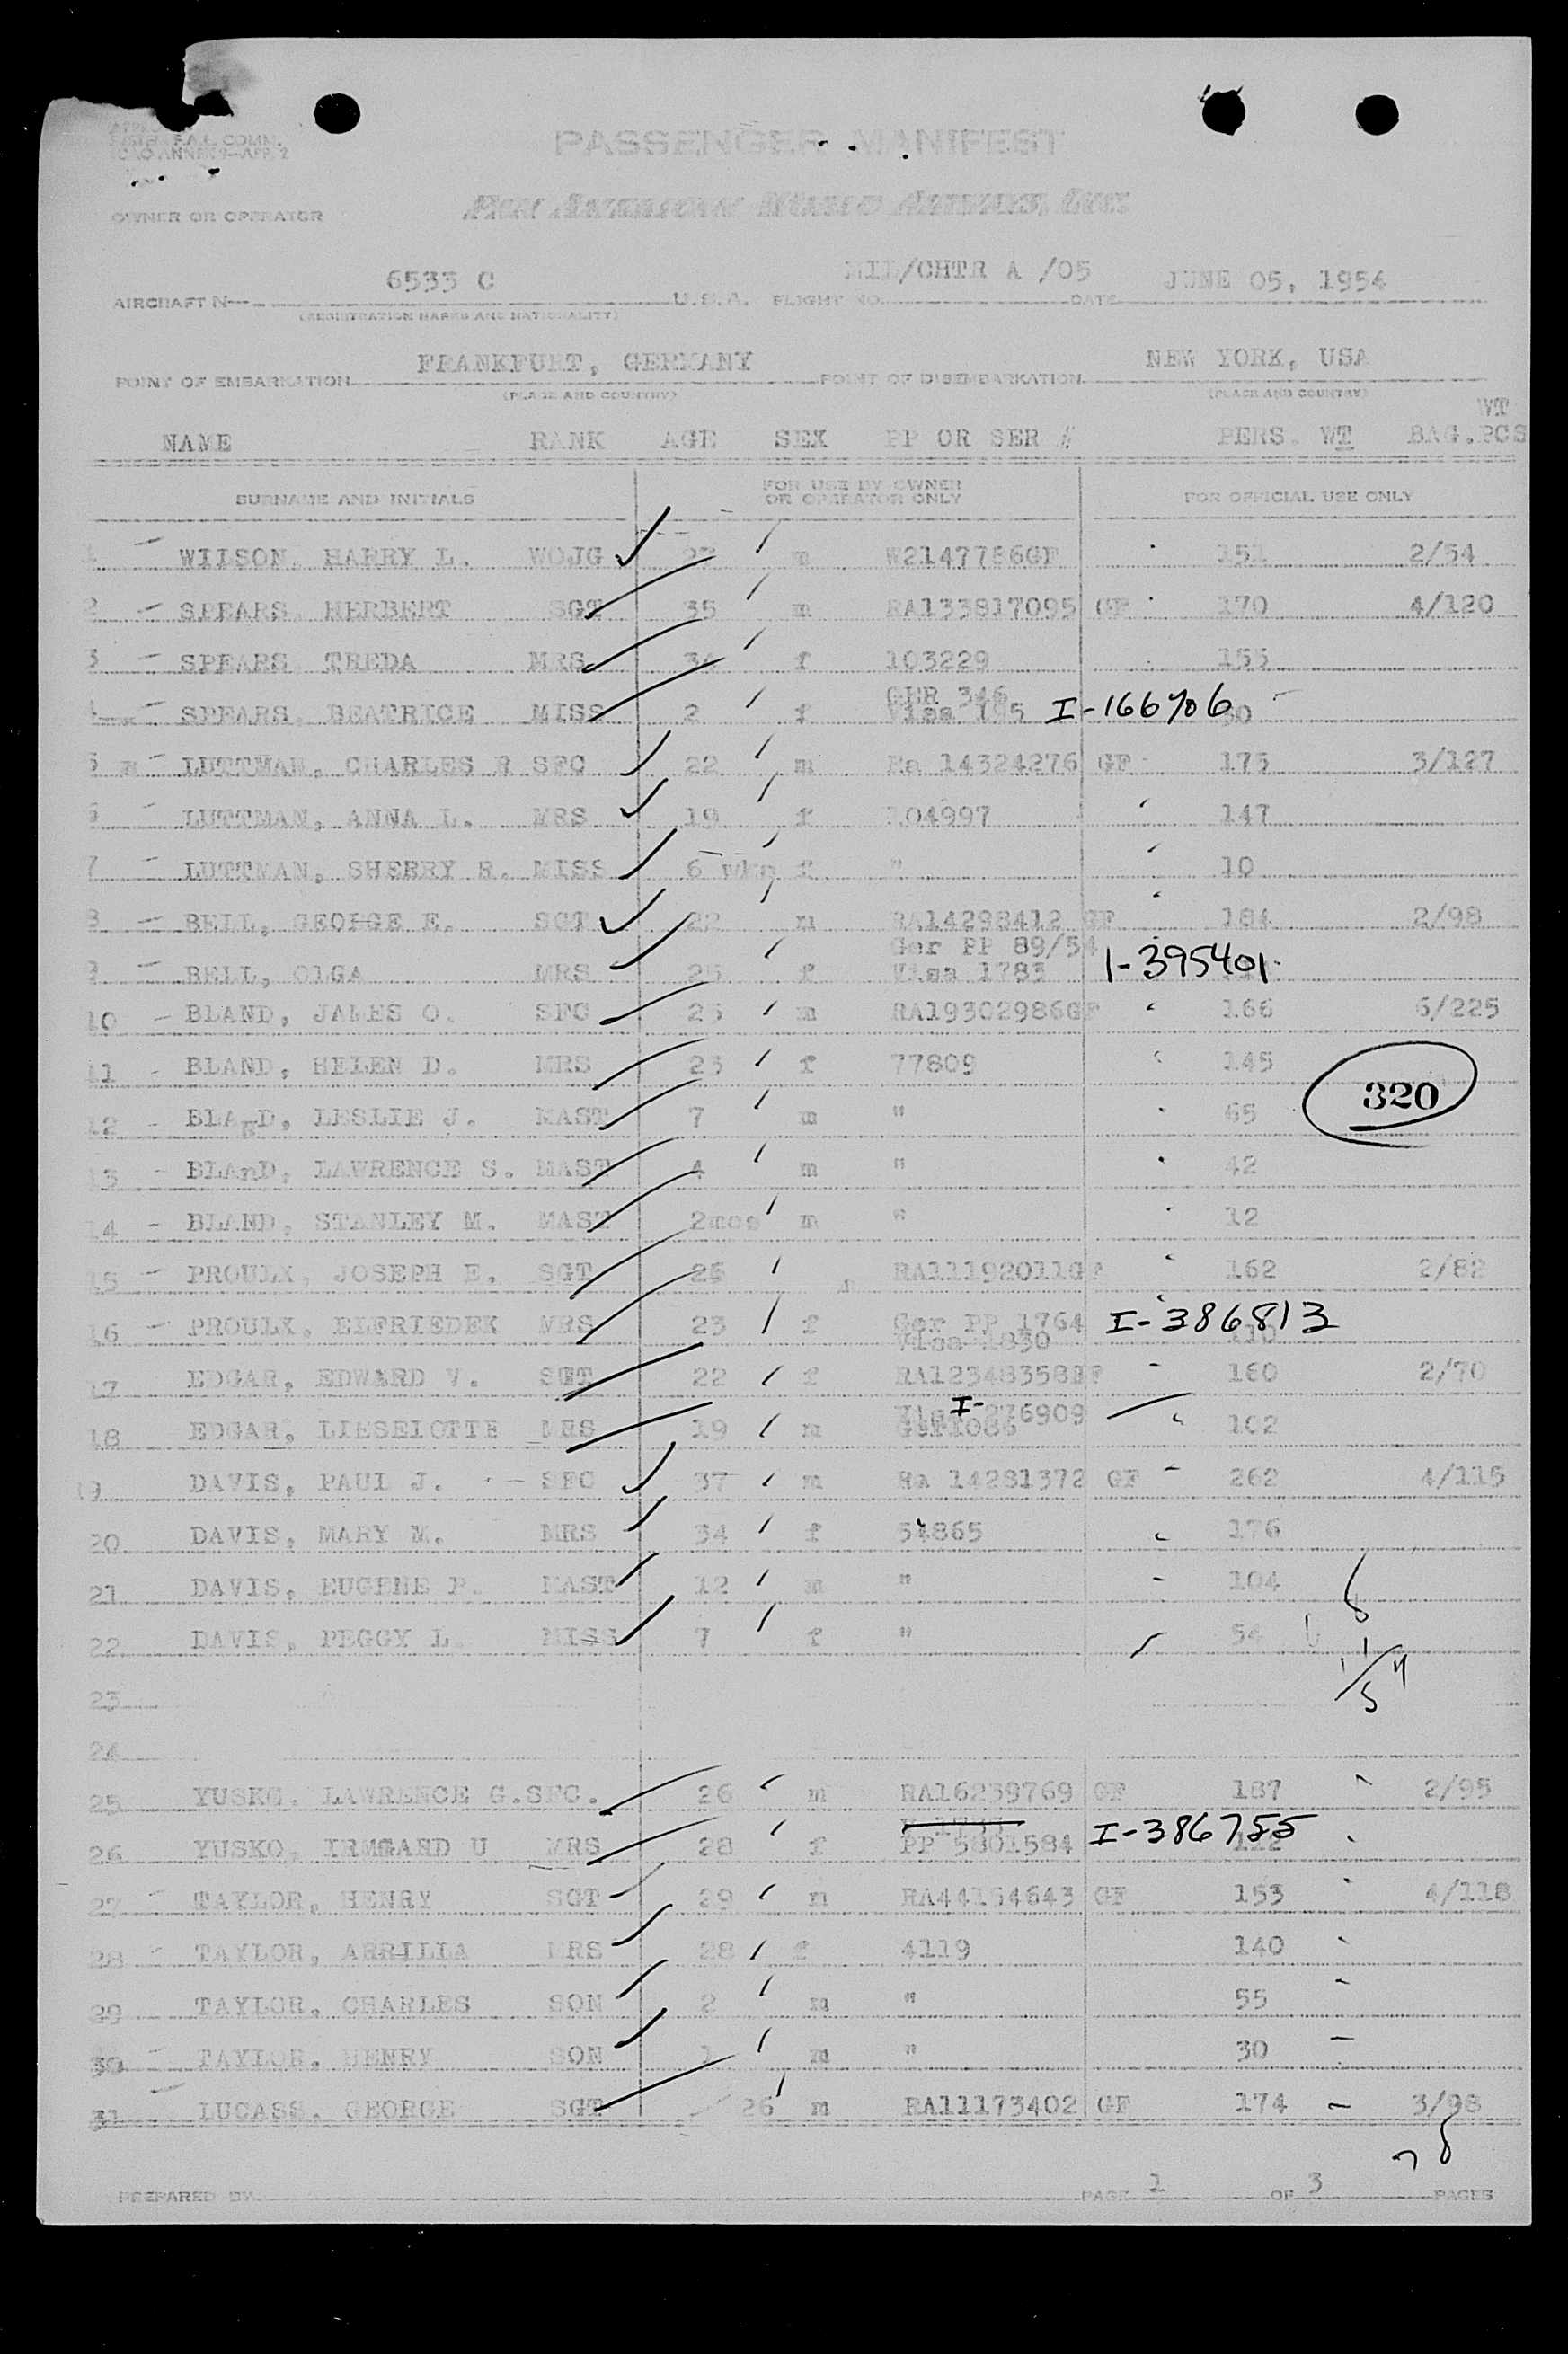 F.A.L. COMM.
PASSENGER MANIFEST
OWNER OR OPERATOR
PAN AMERICAN WORLD AIRWAYS, INC.
6533 C MIL/CHTR A /05 JUNE 05, 1954
AIRCRAFT N— U.S.A. FLIGHT NO. DATE
(REGISTRATION MARKS AND NATIONALITY)
FRANKFURT, GERMANY NEW YORK, USA
POINT OF EMBARKATION POINT OF DISEMBARKATION
(PLACE AND COUNTRY) (PLACE AND COUNTRY)
WT
NAME RANK AGE SEX PP OR SER # PERS. WT BAG.PCS
SURNAME AND INITIALS FOR USE BY OWNER OR OPERATOR ONLY FOR OFFICIAL USE ONLY
WIISON, HARRY L. WOJG m W2147786GF 151 2/54
2 SPEARS, HERBERT SGT 35 m RA133817095 GF 170 4/120
3 SPEARS, THEDA MRS 34 f 103229 155
GER 346
4 SPEARS, BEATRICE MISS 2 f Visa I-166706 30
5 LUTTMAN, CHARLES R SFC 22 m Ra 14324276 GF 175 3/127
6 LUTTMAN, ANNA L. MRS 19 f 104997 147
7 LUTTMAN, SHERRY R. MISS 6 wks f " 10
8 BELL, GEORGE E. SGT 22 m RA14298412 GF 184 2/98
Ger PP 89/54
9 BELL, OlGA MRS 25 f Visa 1783 I-395401
10 BLAND, JAMES O. SFC 25 m RA19302986GF 166 6/225
11 BLAND, HELEN D. MRS 23 f 77809 145
12 BLAnD, LESLIE J. MAST 7 m " 65
320
13 BLAnD, LAWRENCE S. MAST 4 m " 42
14 BLAND, STANLEY M. MAST 2mos m " 12
15 PROULX, JOSEPH E. SGT 25 RA11192011GF 162 2/82
16 PROULX, ELFRIEDEK MRS 23 f Ger PP 1764 I-386813
Visa 1830 110
17 EDGAR, EDWARD V. SGT 22 f RA12348358GF 160 2/70
Visa I-276909
18 EDGAR, LIESElOTTE MRS 19 m Ger1086 102
19 DAVIS, PAUl J. SFC 37 m Ra 14281372 GF 262 4/115
20 DAVIS, MARY M. MRS 34 f 54865 176
21 DAVIS, EUGENE P. MAST 12 m " 104
22 DAVIS, PEGGY L. MISS 7 f " 54
23
24
25 YUSKO, LAWRENCE G.SFC. 26 m RA16239769 GF 187 2/95
26 YUSKO, IRMGARD U MRS 28 f PP 5801584 I-386755 112
27 TAYLOR, HENRY SGT 29 m RA44164643 GF 153 4/118
28 TAYLOR, ARRILIA MRS 28 f 4119 140
29 TAYLOR, CHARLES SON 2 m " 55
30 TAYLOR, HENRY SON 1 m " 30
31 LUCASS, GEORGE SGT 26 m RA11173402 GF 174 3/98
PREPARED BY PAGE 1 OF 3 PAGES